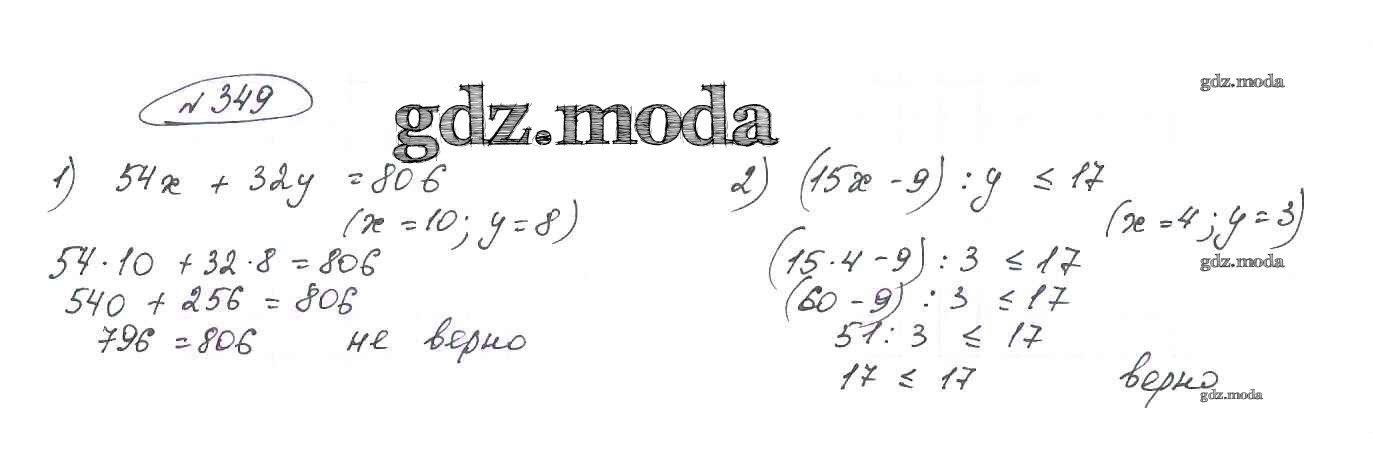 № 349
gdz.moda
gdz.moda
1) 54x + 32y = 806
(x = 10; y = 8)
54 · 10 + 32 · 8 = 806
540 + 256 = 806
796 = 806 не верно
2) (15x - 9) : y ≤ 17
(x = 4; y = 3)
(15 · 4 - 9) : 3 ≤ 17
gdz.moda
(60 - 9) : 3 ≤ 17
51 : 3 ≤ 17
17 ≤ 17 верно
gdz.moda